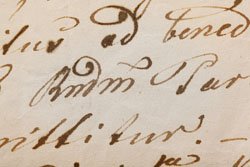 itur ad bened
Rndm̄ Par
mittitur. –